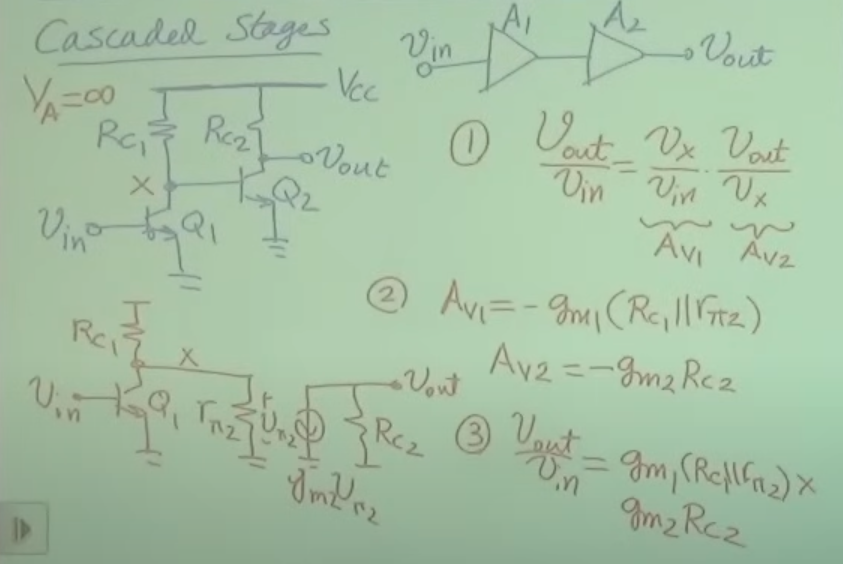 Cascaded Stages
V_A=∞
V_CC
R_C1
R_C2
V_out
X
Q_2
V_in
Q_1
V_in
A_1
A_2
V_out
① V_out/V_in = V_X/V_in · V_out/V_X
A_V1 A_V2
② A_V1 = -g_m1(R_C1||r_π2)
A_V2 = -g_m2 R_C2
R_C1
X
V_in
Q_1
r_π2
+
V_π2
-
g_m2 V_π2
R_C2
V_out
③ V_out/V_in = g_m1(R_C1||r_π2) ×
g_m2 R_C2